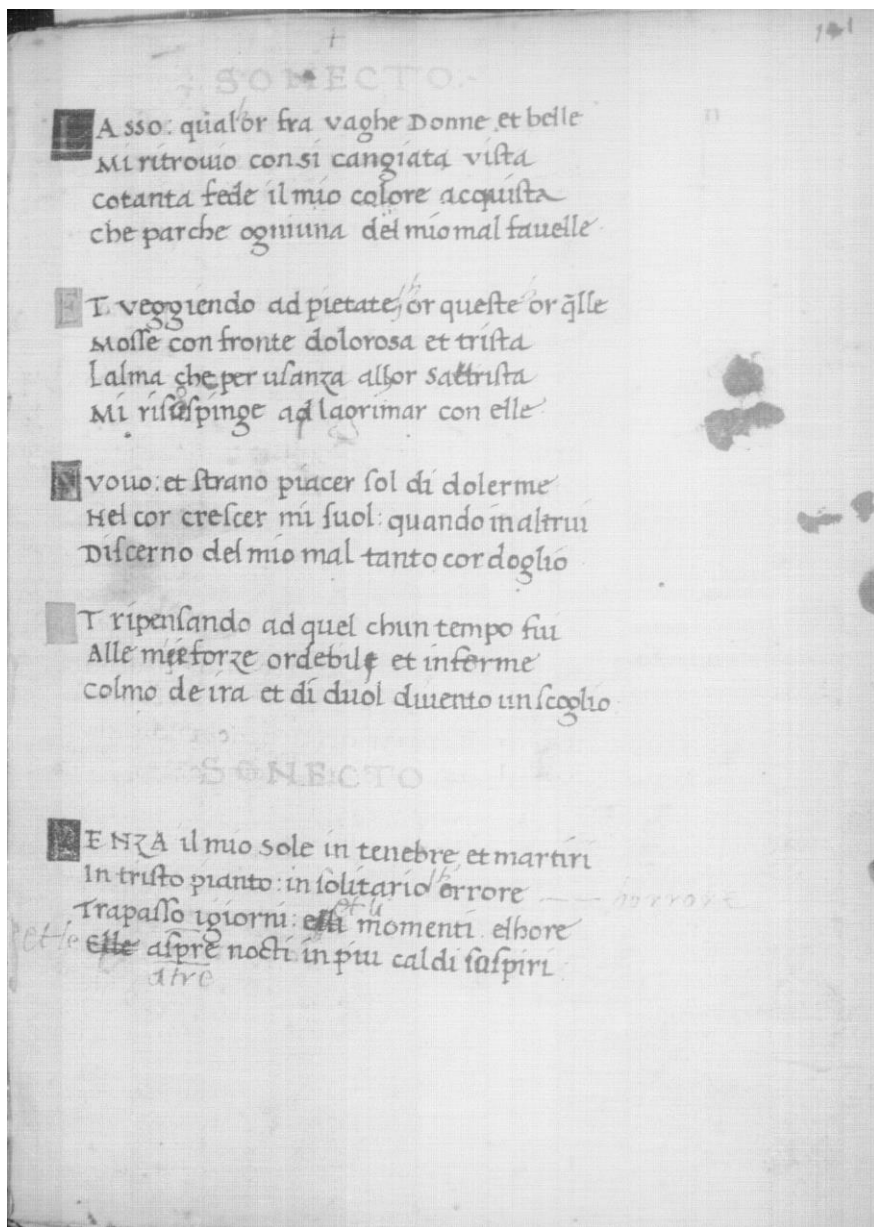 141
SONECTO
LAsso: qual hor fra vaghe Donne et belle
Mi ritrouio con si cangiata vista
Cotanta fede il mio colore acquista
che par che ogniuna del mio mal fauelle
ET veggiendo ad pietate hor queste hor q̃lle
Mosse con fronte dolorosa et trista
Lalma che per usanza allhor sattrista
Mi risospinge ad lagrimar con elle
Nvouo: et strano piacer sol di dolerme
Nel cor crescer mi suol: quando in altrui
Discerno del mio mal tanto cordoglio
ET ripensando ad quel chun tempo fui
Alle mie forze or debile et inferme
Colmo de ira et di duol diuento un scoglio
SONECTO
SENZA il mio Sole in tenebre et martiri
In tristo pianto: in solitario herrore
horrore
Trapasso i giorni: et li momenti elhore
et le Elle aspre nocti in piu caldi suspiri
atre